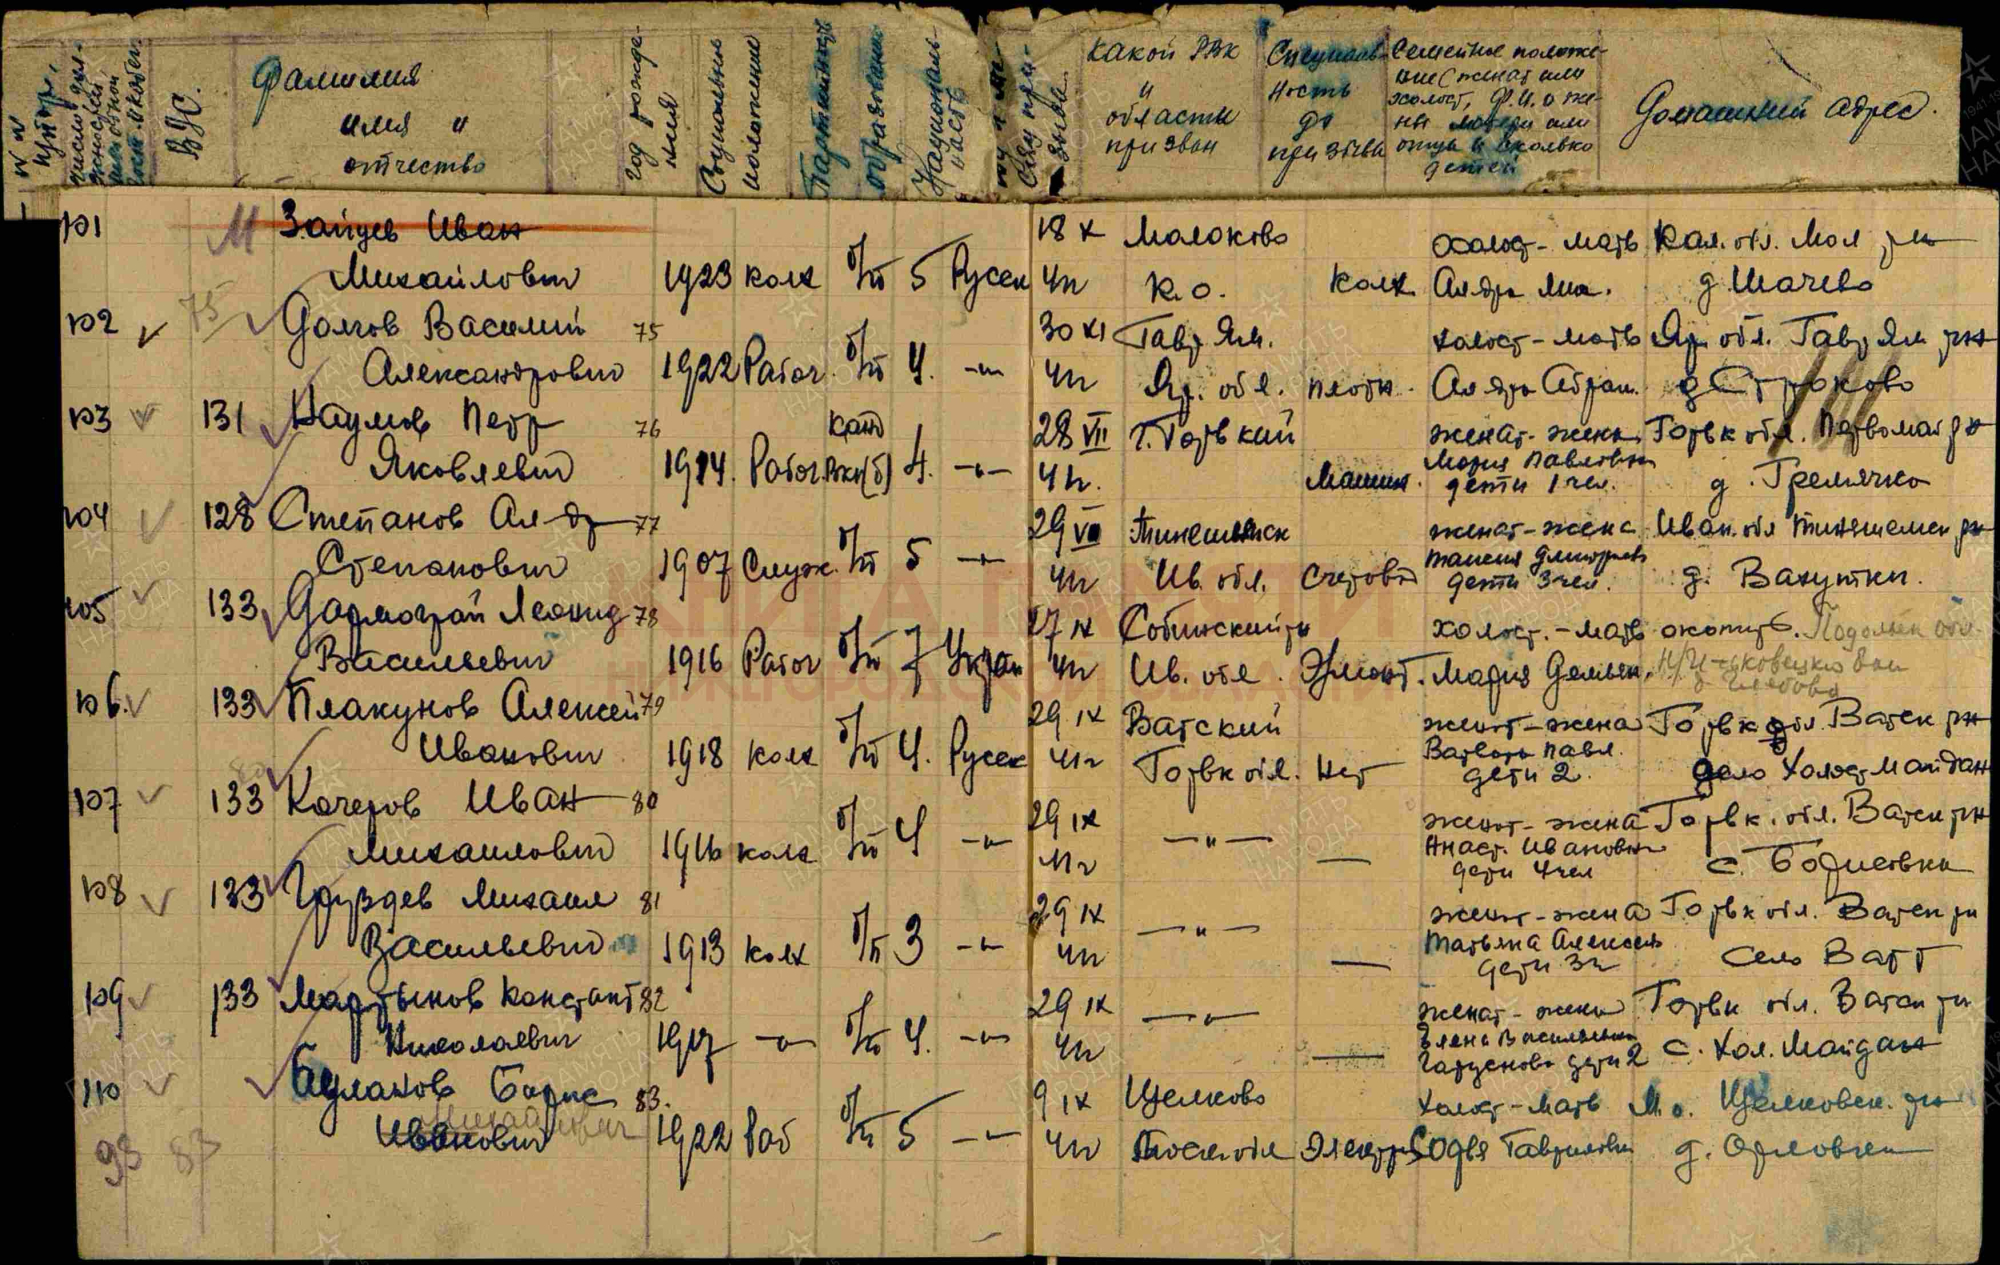 Фамилия имя и отчество
год рождения
Социальное положение
Партийность
образование
Национальность
какой РВК и области призван
Специальность до призыва
Семейное положение (женат или холост, Ф.И.О жены матери или отца и сколько детей
Домашний адрес.
101 Зайцев Иван 18 X Молоково холост - мать Кал. обл. Мол рн
Михайлович 1923 колх б/п 5 Русск 41г К.О. колх Ал-дра Мих. д Шачево
102 75 Долгов Василий 75 30 XI Гавр Ям. холост - мать Яр обл. Гавр Ям рн
Александрович 1922 Рабоч. б/п 4. -"- 41г Яр. обл. плотн. Ал-дра Абрам. д Строково
103 131 Наумов Петр 76 канд 28 VII г. Горький женат - жена Горьк обл. Первомай рн
Яковлевич 1914. Рабоч. ВКП(б) 4. -"- 41г. Машин. Мария Павловна дети 1 чел. д. Гремячка
104 128 Степанов Ал-др 77 29 VII женат - жена Иван. обл
Степанович 1907 Служ. б/п 5 -"- 41г Ив. обл. Счетовод дети 3 чел. д. Вахутки.
105 133 Дармограй Леонид 78 27 IX Собинский рн холост. - мать оккупир. Подольск обл.
Васильевич 1916 Рабоч б/п 7 Украин 41г Ив. обл. Эл.монт. Мария Демьян.
106. 133 Плакунов Алексей 79 29 IX Ватский женат - жена Горьк обл. Ватск рн
Иванович 1918 колх б/п 4. Русск 41г Горьк обл. Нет Варвара Павл. дети 2. село Холост Майдан
107 133 Качеров Иван 80 29 IX -"- женат - жена Горьк. обл. Ватск рн
Михаилович 1916 колх б/п 4 -"- 41г — Анаст. Ивановна дети 4 чел с. Борисовка
108 133 Груздев Михаил 81 29 IX -"- женат - жена Горьк обл. Ватск рн
Васильевич 1913 колх б/п 3 -"- 41г — Татьяна Алексеев дети 3 ч село Ватт
109 133 Мартынов Констант 82 29 IX -"- женат - жена Горьк обл. Ватск рн
Николаевич 1917 -"- б/п 4. -"- 41г — Елена Васильевна дети 2 с. Хол. Майдан
110 Булахов Борис 83. 9 IX Щелково холост - мать М.о. Щелковск. рн
Иванович Михайлович 1922 Раб б/п 5 -"- 41г Моск обл Электр Софья Гавриловн д. Орловка
93 83
КНИГА ПАМЯТИ
НИЖЕГОРОДСКОЙ ОБЛАСТИ
ПАМЯТЬ НАРОДА